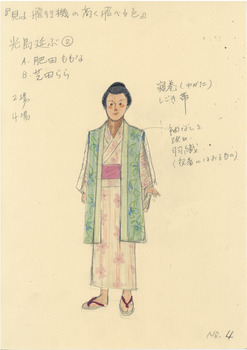 『見よ 飛行機の高く飛べるを』
光島延ぶ②
A. 肥田ももな
B. 芝田らら
2場
4場
寝巻(ゆかた)
しごき帯
袖なしと
羽織
No. 4